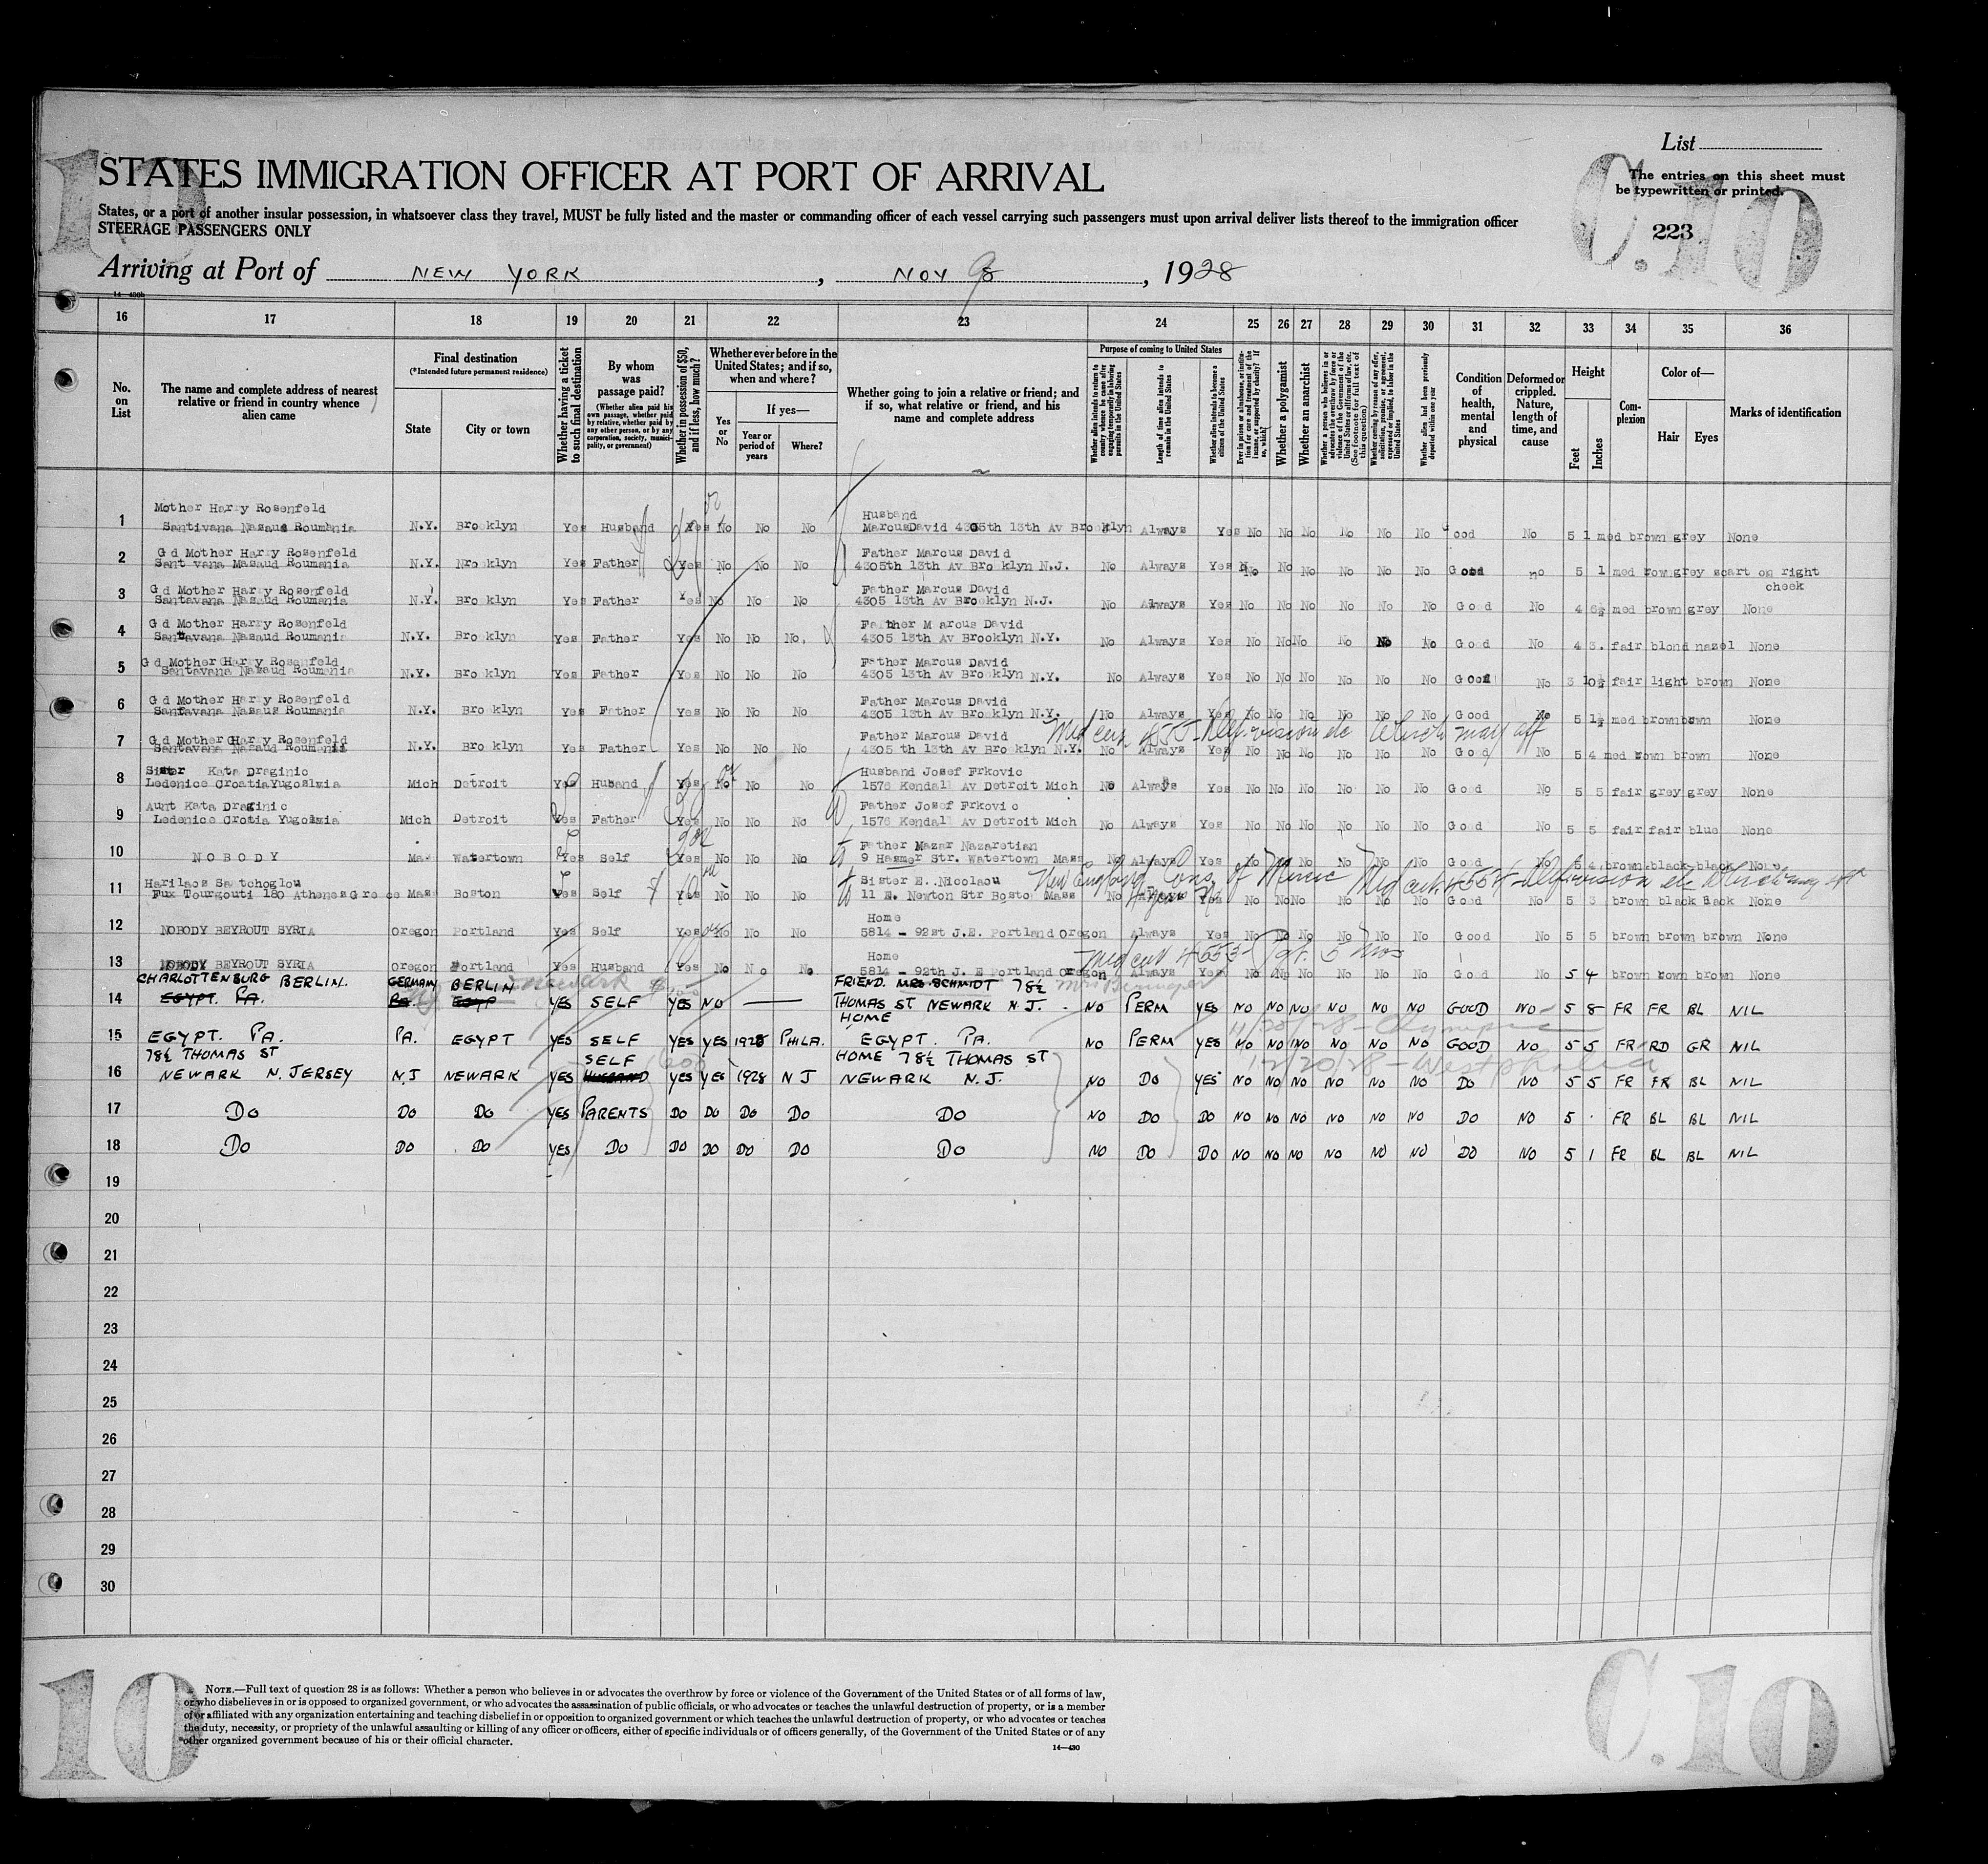 List
10
C.10
STATES IMMIGRATION OFFICER AT PORT OF ARRIVAL
The entries on this sheet must
be typewritten or printed.
States, or a port of another insular possession, in whatsoever class they travel, MUST be fully listed and the master or commanding officer of each vessel carrying such passengers must upon arrival deliver lists thereof to the immigration officer
STEERAGE PASSENGERS ONLY
223
Arriving at Port of NEW YORK, NOV 1928
16 17 18 19 20 21 22 23 24 25 26 27 28 29 30 31 32 33 34 35 36
No. on List
The name and complete address of nearest relative or friend in country whence alien came
Final destination
(*Intended future permanent residence)
State
City or town
Whether having a ticket to such final destination
By whom was passage paid?
(Whether alien paid his own passage, whether paid by relative, whether paid by any other person, or by any corporation, society, municipality, or government)
Whether in possession of $50, and if less, how much?
Whether ever before in the United States; and if so, when and where?
Yes or No
If yes—
Year or period of years
Where?
Whether going to join a relative or friend; and if so, what relative or friend, and his name and complete address
Purpose of coming to United States
Length of time alien intends to remain in the United States
Whether alien intends to become a citizen of the United States
Whether a polygamist
Whether an anarchist
Whether alien had been previously deported within one year
Condition of health, mental and physical
Deformed or crippled. Nature, length of time, and cause
Height
Feet
Inches
Complexion
Color of—
Hair
Eyes
Marks of identification
Mother Harry Rosenfeld Husband
1 Santivana Nasaus Roumania N.Y. Brooklyn Yes Husband Yes No No No MarcusDavid 4305th 13th Av Brooklyn Always Yes No No No No No No ood No 5 1 med brown grey None
Gd Mother Harry Rosenfeld Father Marcus David
2 Sant vana Masaud Roumania N.Y. Nrooklyn Yes Father Yes No No No 4305th 13th Av Brooklyn N.J. No Always Yes No No No No No No Good no 5 1 med rown grey scart on right
cheek
Gd Mother Harry Rosenfeld Father Marcus David
3 Santavana Nasaud Roumania N.Y. Brooklyn Yes Father Yes No No No 4305 13th Av Brooklyn N.J. No Always Yes No No No No No No Good No 4 6½ med brown grey None
Gd Mother Harry Rosenfeld Father Marcus David
4 Santavana Nasaud Roumania N.Y. Brooklyn Yes Father Yes No No No. 4305 13th Av Brooklyn N.Y. No Always Yes No No No No No No Good No 4 3. fair blond nazel None
Gd Mother Harry Rosenfeld Father Marcus David
5 Santavana Nasaud Roumania N.Y. Brooklyn Yes Father Yes No No No 4305 13th Av Brooklyn N.Y. No Always Yes No No No No No No Good No 3 10½ fair light brown None
Gd Mother Harry Rosenfeld Father Marcus David
6 Santavana Nasaus Roumania N.Y. Brooklyn Yes Father Yes No No No 4305 13th Av Brooklyn N.Y. No Always Yes No No No No No No Good No 5 1½ med brown brwn None
Gd Mother Harry Rosenfeld Father Marcus David
7 Santavana Nasaud Roumania N.Y. Brooklyn Yes Father Yes No No No 4305 th 13th Av Brooklyn N.Y. No Always Yes No No No No No No Good No 5 4 med brown brown None
Sister Kata Draginic Husband Josef Frkovic
8 Ledenice CroatiaYugoslwia Mich Detroit Yes Huband Yes No No No 1576 Kendall Av Detroit Mich No Always Yes No No No No No No Good No 5 5 fair grey grey None
Aunt Kata Draginic Father Josef Frkovic
9 Ledenice Crotia Yugoslawia Mich Detroit Yes Father Yes No No No 1576 Kendall Av Detroit Mich No Always Yes No No No No No No Good No 5 5 fair fair blue None
Father Mazar Nazaretian
10 NOBODY Mas Watertown Yes Self Yes No No No 9 Hasmer Str. Watertown Mass No Always Yes No No No No No No Good No 5 4 brown black black None
New England Cons. of Music
Sister E. Nicolaou
11 Fux Tourgouti 180 Athenes Greece Mass Boston Yes Self Yes No No No 11 E. Newton Str Boston Mass No Yes No No No No No No Good No 5 3 brown black Back None
Home
12 NOBODY BEYROUT SYRIA Oregon Portland Yes Self Yes No No No 5814 - 92st J.E. Portland Oregon Always Yes No No No No No No Good No 5 5 brown brown brown None
Home
13 NOBODY BEYROUT SYRIA Oregon Portland Yes Husband Yes No No No 5814 - 92th J. E Portland Oregon Always Yes No No No No No No Good No 5 4 brown brown brown None
CHARLOTTENBURG BERLIN. GERMANY BERLIN Newark FRIEND. MRS. SCHMIDT 78½
14 EGYPT. PA. PA. EGYP YES SELF YES NO — THOMAS ST NEWARK N.J. NO PERM YES NO NO NO NO NO NO GOOD NO 5 8 FR FR BL NIL
HOME
15 EGYPT. PA. PA. EGYPT YES SELF YES YES 1928 PHILA. EGYPT. PA. NO PERM YES NO NO NO NO NO NO GOOD NO 5 5 FR RD GR NIL
11/20/28 - Olympic
78½ THOMAS ST SELF HOME 78½ THOMAS ST
12/20/28 - Westphalia
16 NEWARK N. JERSEY N.J NEWARK YES HUSBAND YES YES 1928 N J NEWARK N.J. NO DO YES NO NO NO NO NO NO DO NO 5 5 FR FR BL NIL
17 DO DO DO YES PARENTS DO DO DO DO DO NO DO DO NO NO NO NO NO NO DO NO 5 . FR BL BL NIL
18 DO DO DO YES DO DO DO DO DO DO NO DO DO NO NO NO NO NO NO DO NO 5 1 FR BL BL NIL
19
20
21
22
23
24
25
26
27
28
29
30
10
C.10
NOTE.—Full text of question 28 is as follows: Whether a person who believes in or advocates the overthrow by force or violence of the Government of the United States or of all forms of law,
or who disbelieves in or is opposed to organized government, or who advocates the assassination of public officials, or who advocates or teaches the unlawful destruction of property, or is a member
of or affiliated with any organization entertaining and teaching disbelief in or opposition to organized government or which teaches the unlawful destruction of property, or who advocates or teaches
the duty, necessity, or propriety of the unlawful assaulting or killing of any officer or officers, either of specific individuals or of officers generally, of the Government of the United States or of any
other organized government because of his or their official character.
14—430